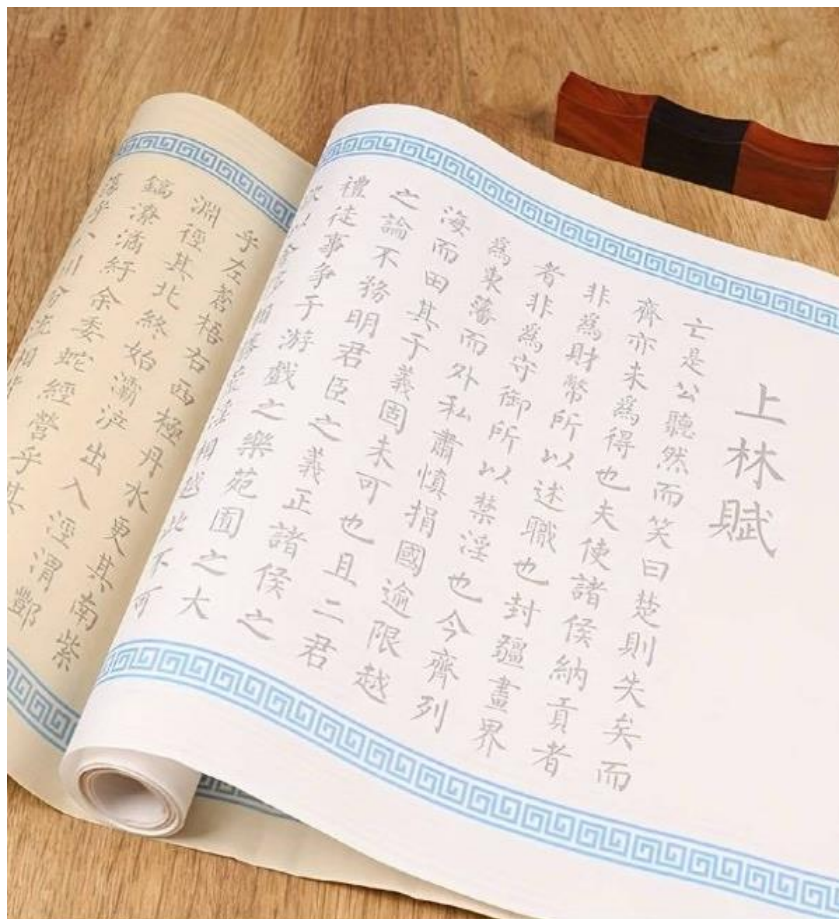 上林賦
亡是公聽然而笑曰楚則失矣而
齊亦未爲得也夫使諸侯納貢者
非爲財幣所以述職也封疆畫界
者非爲守御所以禁淫也今齊列
爲東藩而外私肅慎捐國逾限越
海而田其于義固未可也且二君
之論不務明君臣之義正諸侯之
禮徒事爭于游戲之樂苑囿之大
以奢相勝荒淫相越此不可
乎左蒼梧右西極丹水更其南紫
淵徑其北終始灞滻出入涇渭酆
鎬潦潏紆余委蛇經營乎其
蕩乎八川分流相